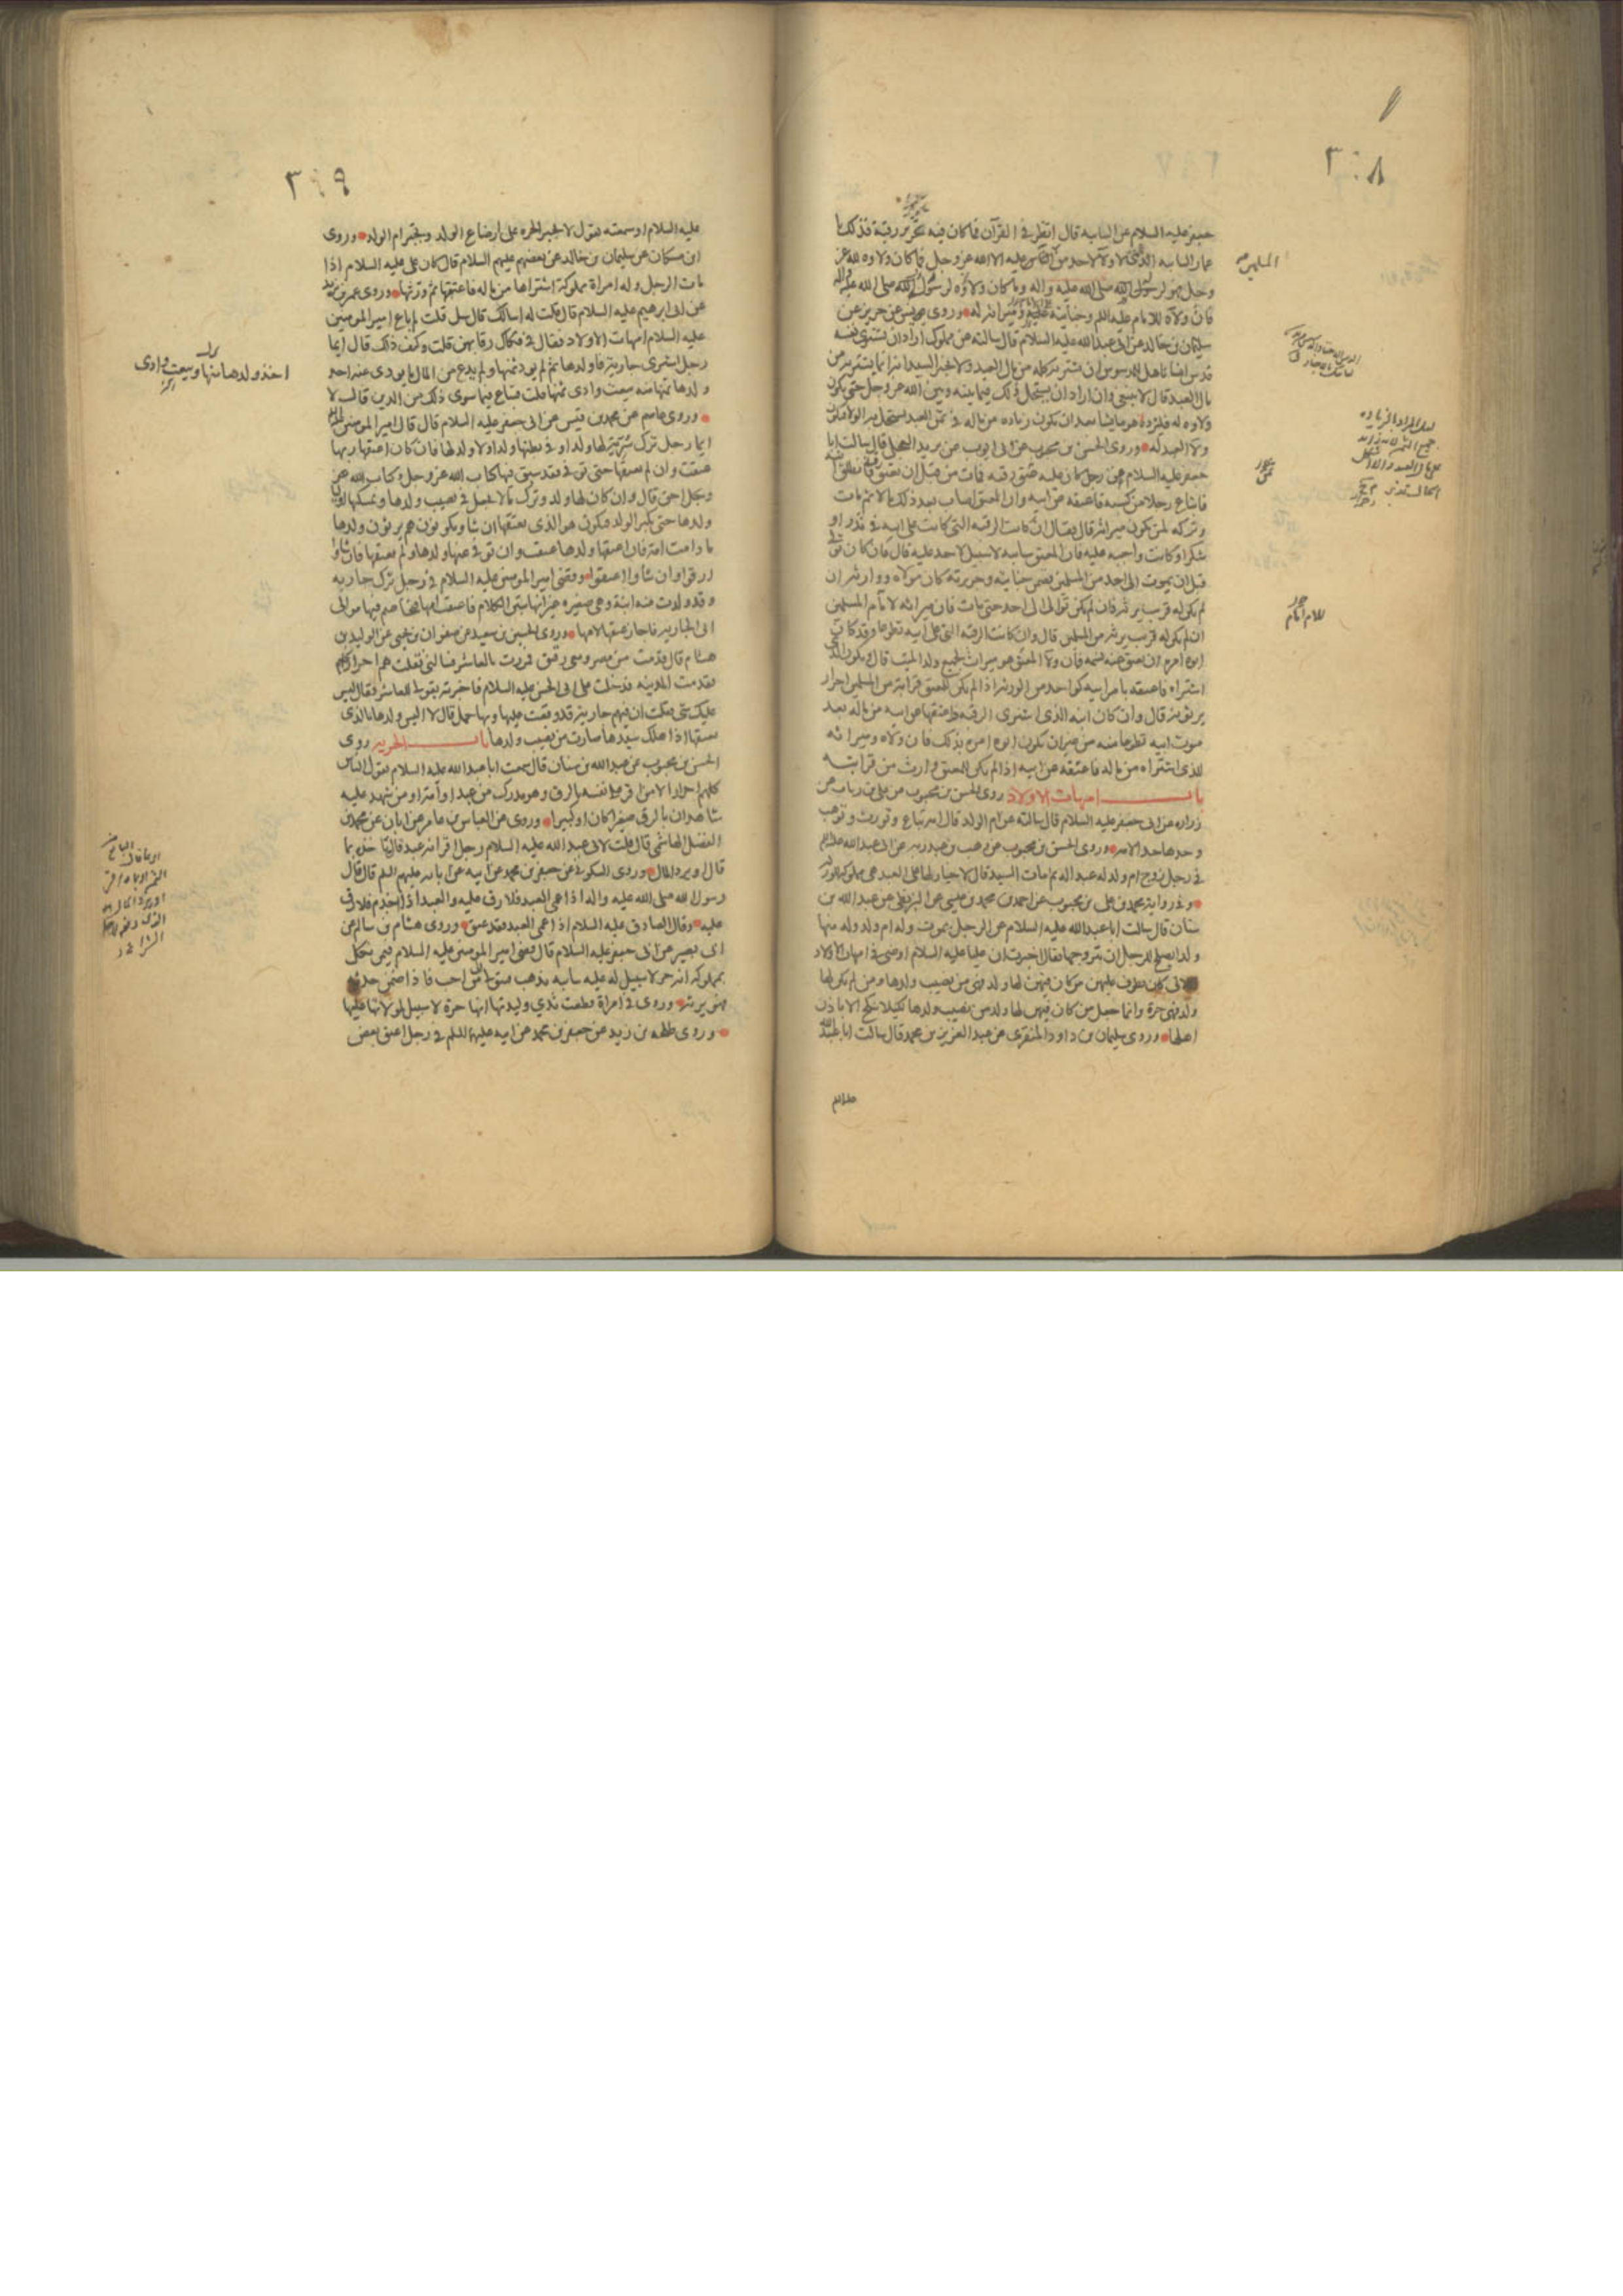 ٣٤٨
جعفر عليه السلام عن السايبه قال انظر في القرآن فما كان فيه تحرير رقبة فذلك يا
عمار السايبه التي لا ولاء لاحد من الناس عليه الا الله عز وجل فما كان ولاوه لله عز
وجل فهو لرسول الله صلى الله عليه واله وما كان ولاؤه لرسول الله صلى الله عليه واله
فان ولاءه للامام عليه السلم وجنايته على الامام وميراثه له وروى حريز عن
سليمان بن خالد عن ابي عبد الله عليه السلام قال سالته عن مملوك اراد ان يشترى نفسه
فدس انسانا هل للمدسوس ان يشتريه كله من مال العبد ولا يخبر السيد انه انما يشتريه من
مال العبد قال لا ينبغي وان اراد ان يستحل ذلك فيما بينه وبين الله عز وجل حتى يكون
ولاوه له فليزد هو ما يشا بعد ان يكون زياده من ماله في ثمن العبد يستحل به الولا فيكون
ولاء العبد له وروى الحسن بن محبوب عن ابي ايوب عن بريد العجلي قال سالت ابا
جعفر عليه السلام عن رجل كان عليه عتق رقبه فمات من قبل ان يعتق فانطلق ابنه
فابتاع رجلا من كسبه فاعتقه عن ابيه وان المعتق اصاب بعد ذلك مالا ثم مات
وتركه لمن يكون ميراثه قال فقال ان كانت الرقبه التي كانت على ابيه في نذر او
شكر او كانت واجبه عليه فان المعتق سايبه لا سبيل لاحد عليه قال فان كان توالى
قبل ان يموت الى احد من المسلمين فضمن جنايته وجريرته كان مولاه ووارثه ان
لم يكن له قريب يرثه فان لم يكن توالى الى احد حتى مات فان ميراثه لامام المسلمين
ان لم يكن له قريب يرثه من المسلمين قال وان كانت الرقبه التي على ابيه تطوعا وقد كان
ابوه امره ان يعتق عنه نسمه فان ولاء المعتق هو ميراث لجميع ولد الميت قال ويكون الذى
اشتراه فاعتقه بامر ابيه كواحد من الورثه اذا لم يكن للمعتق قرابه من المسلمين احرار
يرثونه قال وان كان ابنه الذى اشترى الرقبه فاعتقها عن ابيه من ماله بعد
موت ابيه تطوعا منه من غير ان يكون ابوه امره بذلك فان ولاه وميراثه
للذى اشتراه من ماله فاعتقه عن ابيه اذا لم يكن للمعتق وارث من قرابته
باب امهات الاولاد روى الحسن بن محبوب عن علي بن رياب عن
زراره عن ابي جعفر عليه السلام قال سالته عن ام الولد قال امه تباع وتورث وتوهب
وحدها حد الامه وروى الحسن بن محبوب عن وهب بن عبد ربه عن ابي عبد الله عليه السلم
في رجل زوج ام ولد له عبدا له ثم مات السيد قال لا خيار لها على العبد هي مملوكه للورثه
وفي رواية محمد بن علي بن محبوب عن احمد بن محمد بن عيسى عن البزنطي عن عبد الله بن
سنان قال سالت ابا عبد الله عليه السلام عن الرجل يموت وله ام ولد وله منها
ولد ايصلح للرجل ان يتزوجها فقال اخبرت ان عليا عليه السلام اوصى في امهات الاولاد
اللاتي كان يطوف عليهن من كان منهن لها ولد فهى من نصيب ولدها ومن لم يكن لها
ولد فهى حرة وانما جعل من كان منهن لها ولد من نصيب ولدها لكيلا تنكح الا باذن
اهلها وروى سليمان بن داود المنقرى عن عبد العزيز بن محمد قال سالت ابا عبد الله
عليه السلم
المسلمين
للامام
٣٤٩
عليه السلام او سمعته يقول لا تجبر الحره على ارضاع الولد وتجبر ام الولد وروى
ابن مسكان عن سليمان بن خالد عن بعضهم عليهم السلام قال كان علي عليه السلام اذا
مات الرجل وله امراة مملوكة اشتراها من ماله فاعتقها ثم ورثها وروى عمر بن يزيد
عن ابي ابرهيم عليه السلام قال قلت له اسالك قال سل قلت لم باع امير المومنين
عليه السلام امهات الاولاد فقال في فكاك رقابهن قلت وكيف ذلك قال ايما
رجل اشترى جارية فاولدها ثم لم يود ثمنها ولم يدع من المال ما يودى عنه اخذ
ولدها منها منه بيعت وادى ثمنها قلت فتباع فيما سوى ذلك من الدين قال لا
وروى عاصم عن محمد بن قيس عن ابي جعفر عليه السلام قال قال امير المومنين عليه السلم
ايما رجل ترك سرية لها ولد او في بطنها ولد او لا ولد لها فان كان اعتقها ربها
عتقت وان لم يعتقها حتى توفي فقد سبق فيها كتاب الله عز وجل وكتاب الله عز
وجل احق قال وان كان لها ولد وترك مالا تجعل في نصيب ولدها ويمسكها اوليا
ولدها حتى يكبر الولد فيكون هو الذى يعتقها ان شا ويكونون هم يرثون ولدها
ما دامت امه فان اعتقها ولدها عتقت وان توفي عنها ولدها ولم يعتقها فان شاوا
ارقوا وان شاوا اعتقوا وقضى امير المومنين عليه السلام في رجل ترك جاريه
وقد ولدت منه ابنة وهى صغيره غير انها تبين الكلام فاعتقت امها فخاصم فيها موالى
ابي الجاريه فاجاز عتقها لامها وروى الحسين بن سعيد عن صفوان بن يحيى عن الوليد بن
هشام قال قدمت من مصر ومعى رقيق فمررت بالعاشر فسالنى فقلت هم احرار كلهم
فقدمت المدينه فدخلت على ابي الحسن عليه السلام فاخبرته بقولى للعاشر فقال ليس
عليك شى فقلت ان فيهم جارية قد وقعت عليها وبها حمل قال لا اليس ولدها بالذى
يعتقها اذا هلك سيدها صارت من نصيب ولدها باب الحريه روى
الحسن بن محبوب عن عبد الله بن سنان قال سمعت ابا عبد الله عليه السلام يقول الناس
كلهم احرار الا من اقر على نفسه بالرق وهو مدرك من عبد او امة او من شهد عليه
شاهدان بالرق صغيرا كان او كبيرا وروى عن العباس بن عامر عن ابان عن محمد بن
الفضل الهاشمي قال قلت لابي عبد الله عليه السلام رجل اقر انه عبد قال تاخذه بما
قال ويرد المال وروى السكوني عن جعفر بن محمد عن ابيه عن آبائه عليهم السلم قال قال
رسول الله صلى الله عليه واله اذا عمى العبد فلا رق عليه والعبد اذا جذم فلا رق
عليه وقال الصادق عليه السلام اذا عمى العبد فقد عتق وروى هشام بن سالم عن
ابي بصير عن ابي جعفر عليه السلام قال قضى امير المومنين عليه السلام فيمن نكل
بمملوكه انه حر لا سبيل له عليه سايبه يذهب فيتولى من احب فاذا ضمن حدثه
فهو يرثه وروى في امراة قطعت ثدي وليدتها انها حرة لا سبيل لمولاتها عليها
وروى طلحه بن زيد عن جعفر بن محمد عن ابيه عليهما السلم في رجل اعتق بعض
اخذ ولدها منها وبيعت وادى